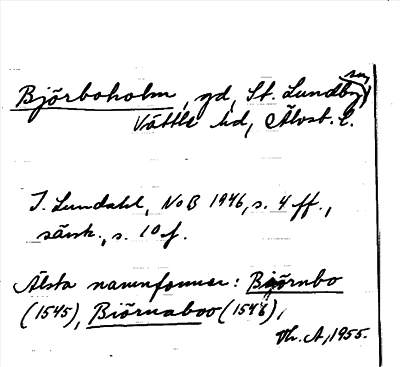 Björboholm, gd, St. Lundby sn,
Vättle hd, Älvsb. l.
I. Lundahl, NoB 1946, s. 4 ff.,
särsk., s. 10 f.
Älsta namnformer: Biörnbo
(1545), Biörnaboo (1546),
Vh. A, 1955.